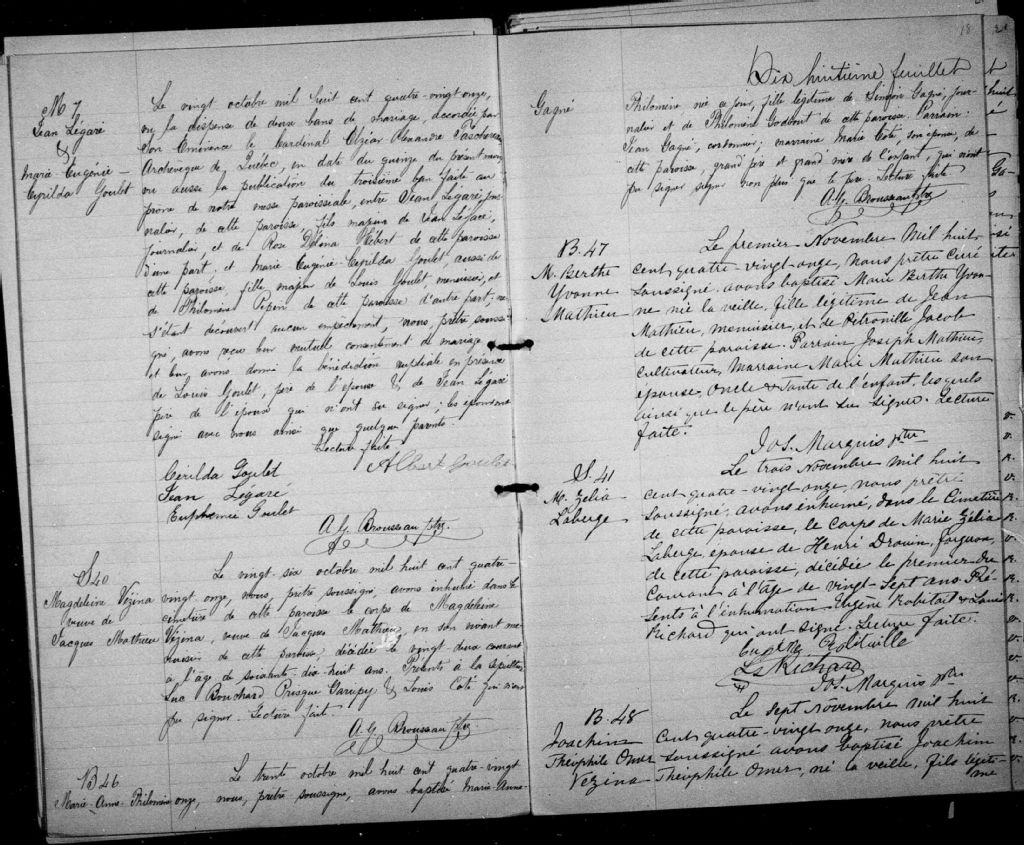 M 7
Jean Légaré
&
Marie Eugénie
Cyrilda Goulet
Le vingt octobre mil huit cent quatre-vingt-onze,
vu la dispense de deux bans de mariage, accordée par
Son Eminence le Cardinal Elzéar Alexandre Taschereau
Archevêque de Québec, en date du quinze du présent mois,
vu aussi la publication du troisième ban faite au
prône de notre messe paroissiale, entre Jean Légaré, jour-
nalier, de cette paroisse, fils majeur de Jean Légaré,
journalier, et de Rose Délina Hébert de cette paroisse
d'une part; et Marie Eugénie Cyrilda Goulet aussi de
cette paroisse, fille majeur de Louis Goulet, menuisier, et
de Philomène Pepin de cette paroisse d'autre part; ne
s'étant découvert aucun empêchement, nous, prêtre soussi-
gné, avons reçu leur mutuel consentement de mariage
et leur avons donné la bénédiction nuptiale en présence
de Louis Goulet, père de l'épouse & de Jean Légaré
père de l'époux qui n'ont su signer; les époux ont
signé avec nous ainsi que quelques parents.
Lecture faite.
Cérilda Goulet
Albert Goulet
Jean Légaré
Euphemie Goulet
A. G. Brousseau ptre.
S40
Magdeleine Vézina
veuve de
Jacques Mathieu
Le vingt-six octobre mil huit cent quatre-
vingt-onze, nous, prêtre soussigné, avons inhumé dans le
cimetière de cette paroisse le corps de Magdeleine
Vézina, veuve de Jacques Mathieu, en son vivant me-
nuisier de cette paroisse, décédée le vingt-deux courant
à l'âge de soixante-dix-huit ans. Présents à la sépulture
Luc Bouchard Gariépy & Louis Coté qui n'ont
pu signer. Lecture faite.
A. G. Brousseau ptre.
B46
Marie-Anne-Philomène
Le trente octobre mil huit cent quatre-vingt
onze, nous, prêtre soussigné, avons baptisé Marie-Anne-
18
Dix huitième feuillet
Gagné
Philomène née ce jour, fille légitime de Siméon Gagné, jour-
nalier et de Philomène Godbout de cette paroisse. Parrain:
Jean Gagné, cordonnier; marraine Marie Coté, son épouse, de
cette paroisse, grand père et grand mère de l'enfant, qui n'ont
pu signer signer non plus que le père. Lecture faite
A. G. Brousseau ptre
B. 47
M. Berthe
Yvonne
Mathieu
Le premier Novembre mil huit
cent quatre-vingt-onze, nous prêtre curé
soussigné avons baptisé Marie Berthe Yvon-
ne née la veille, fille légitime de Jean
Mathieu, menuisier, et de Pétronille Jacob
de cette paroisse. Parrain Joseph Mathieu,
cultivateur, Marraine Marie Mathieu son
épouse, oncle & tante de l'enfant, lesquels
ainsi que le père n'ont su signer. Lecture
faite.
Jos. Marquis ptre
S. 41
M. Zélia
Laberge
Le trois Novembre mil huit
cent quatre-vingt onze, nous prêtre
soussigné, avons inhumé, dans le Cimetière
de cette paroisse, le corps de Marie Zélia
Laberge, épouse de Henri Drouin, forgeron,
de cette paroisse, décédée le premier du
Courant à l'âge de vingt-sept ans. Pré-
sents à l'inhumation Eugène Robitail & Louis
Richard qui ont signé. Lecture faite.
Ls Richard
Jos. Marquis ptre
B. 48
Joachim
Théophile Omer
Vézina
Le sept novembre mil huit
cent quatre-vingt onze, nous prêtre
soussigné avons baptisé Joachim
Théophile Omer, né la veille, fils légiti-
me